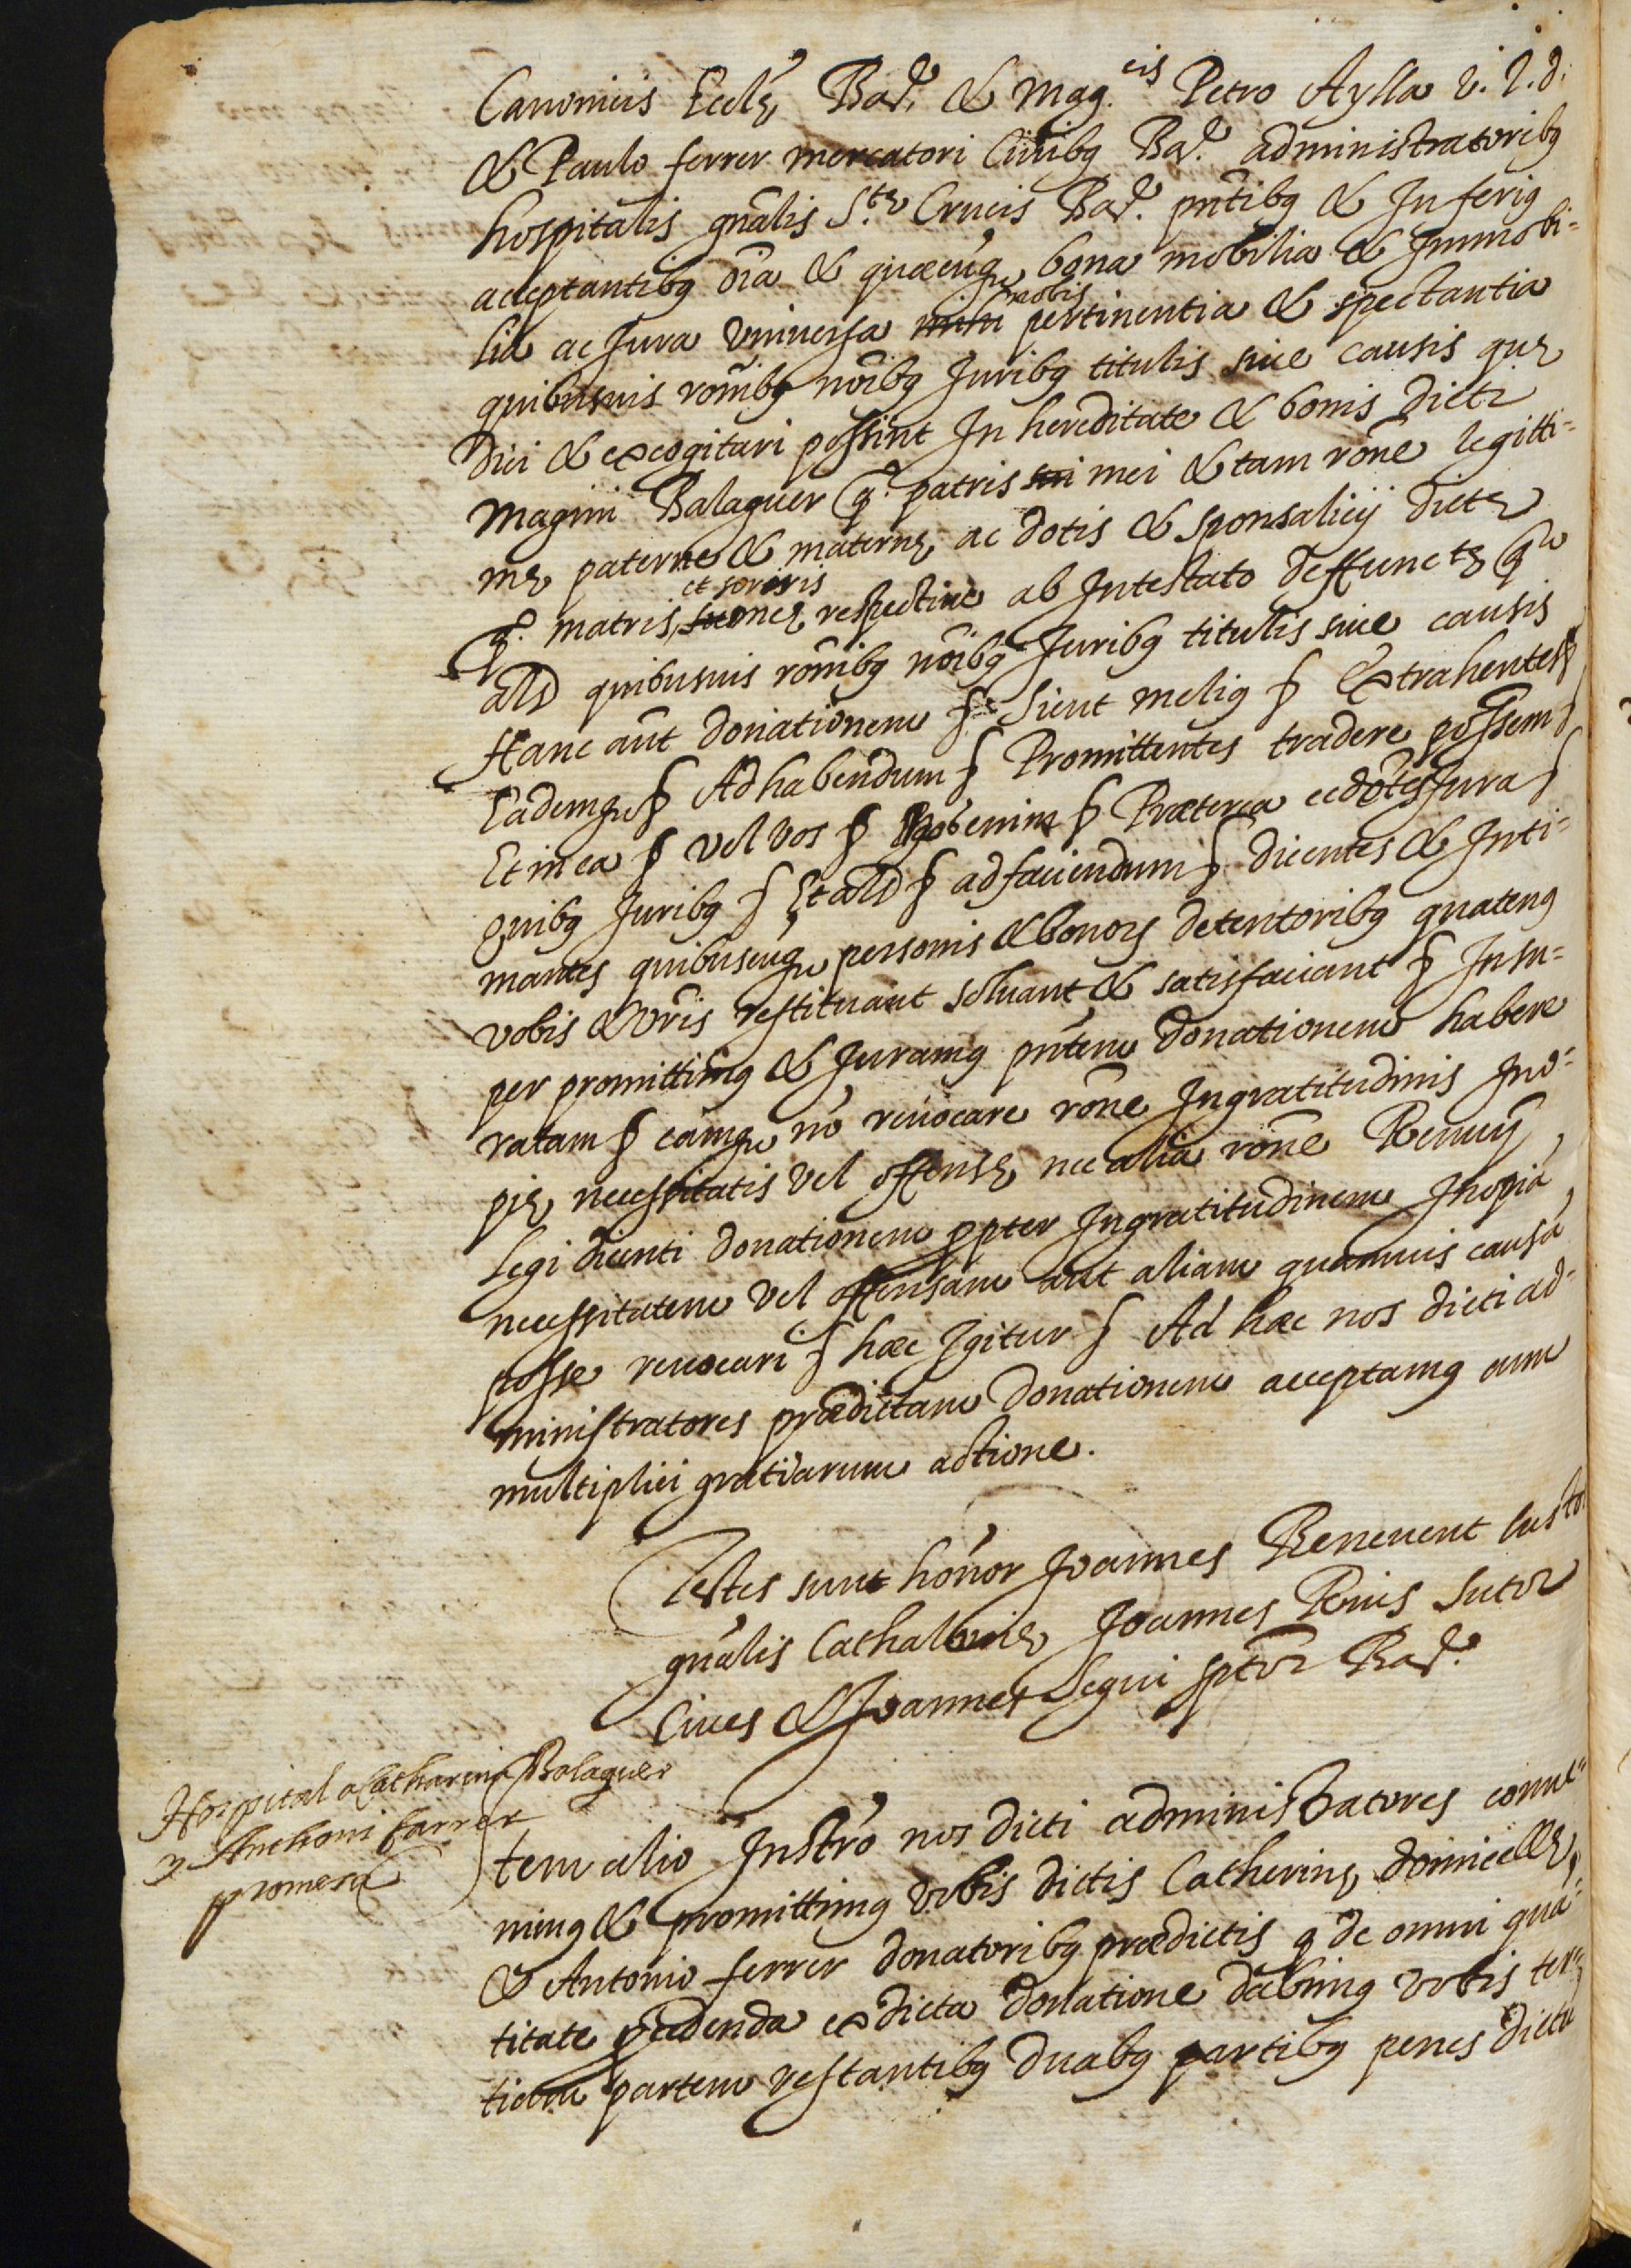 Canonicis Ecclę Bar. & Mag.cis Petro Aylla V. J. d.
& Paulo ferrer mercatori Civibq Bar. administratoribq
hospitalis gñalis S.tę Crucis Bar. pñtibq & Inferiq
acceptantibq oïa & quæcũq bona mobilia & Immobi=
lia ac Jura Universa mihi nobis pertinentia & spectantia
quibusuis rõnibq nõibq Juribq titulis siue causis quę
dici & excogitari possint In hereditate & bonis dicti
Magini Balaguer q.º patris sui mei & tam rõne legitti=
mę paterne & maternę ac dotis & sponsalicij dictę
q.º matris, et sororis suę meę respectiue ab Intestato deffunctę q
als quibusuis rõnibq nõibq Juribq titulis siue causis
Hanc aũt donationem § Sicut meliq § Extrahentes §
Eademq § Ad habendum § Promittentes tradere possem §
Et in ea § vel vos § Nos enim § Præterea cedẽtes Jura §
Quibq Juribq § Et als § ad faciendum § dicentes & Inti=
mantes quibuscuq personis & bonorʒ detentoribq quatenq
vobis & vr̃is restituant soluant & satisfaciant § Insu=
per promittimq & Juramq pñtem donationem habere
ratam § eamq nõ reuocare rõne Ingratitudinis Ino=
pię necessitatis vel offensę nec alia rõne Renuñ
Legi dicenti donationem ppter Ingratitudinem Inopiã
necessitatem vel offensam aut aliam quamuis causã
posse reuocari § hæc Igitur § Ad hæc nos dicti ad=
ministratores prædictam donationem acceptamq cum
multiplici gratiarum actione.
Testes sunt honor Joannes Beneuent
gñalis Cathalonię Joannes Riuis Sutor
Ciues & Joannes Segui sptor Bar.
Hospital a Catharina Balaguer
y Anthoni farrer
promesa
Item alio Instro nos dicti administratores conue=
nimq & promittimq vobis dictis Catherinę domicellę,
& Antonio ferrer donatoribq prædictis q de omni quã=
titate ex dicta donatione dabimq vobis ter=
tiam partem restantibq duabq partibq penes dictũ